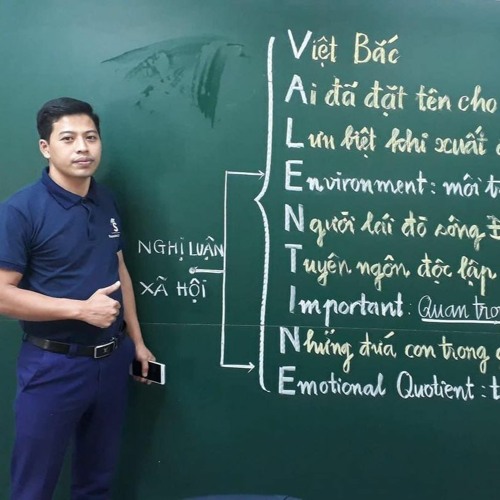 Việt Bắc
Ai đã đặt tên cho
Lưu biệt khi xuất
Environment: môi
NGHỊ LUẬN
XÃ HỘI
Người lái đò sông
Tuyên ngôn độc lập
Important: Quan
Những đứa con trong
Emotional Quotient: